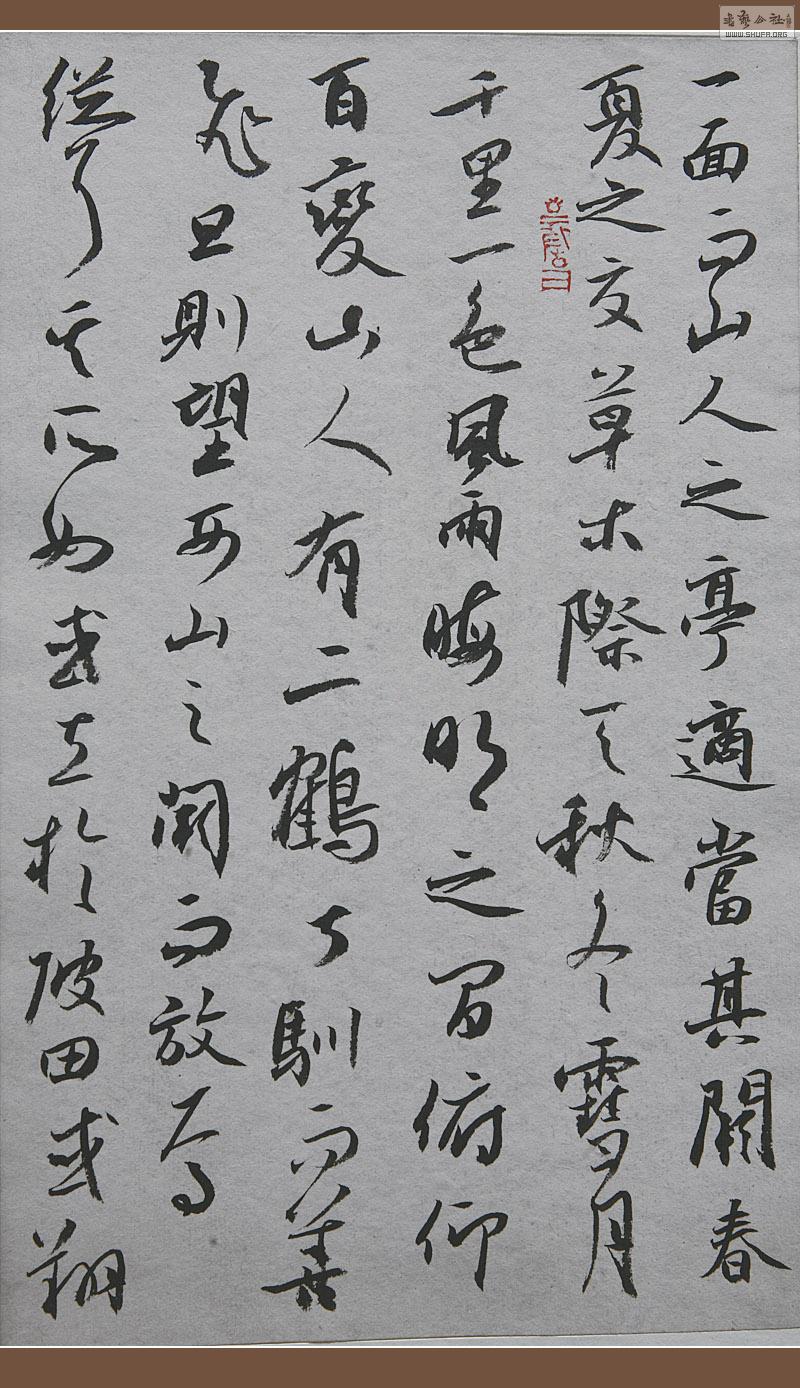 一面而山人之亭適當其闕春
夏之交草木際天秋冬雪月
千里一色風雨晦明之間俯仰
百變山人有二鶴甚馴而善
飛旦則望西山之闕而放焉
縱其所如或立於陂田或翔
WWW.SHUFA.ORG